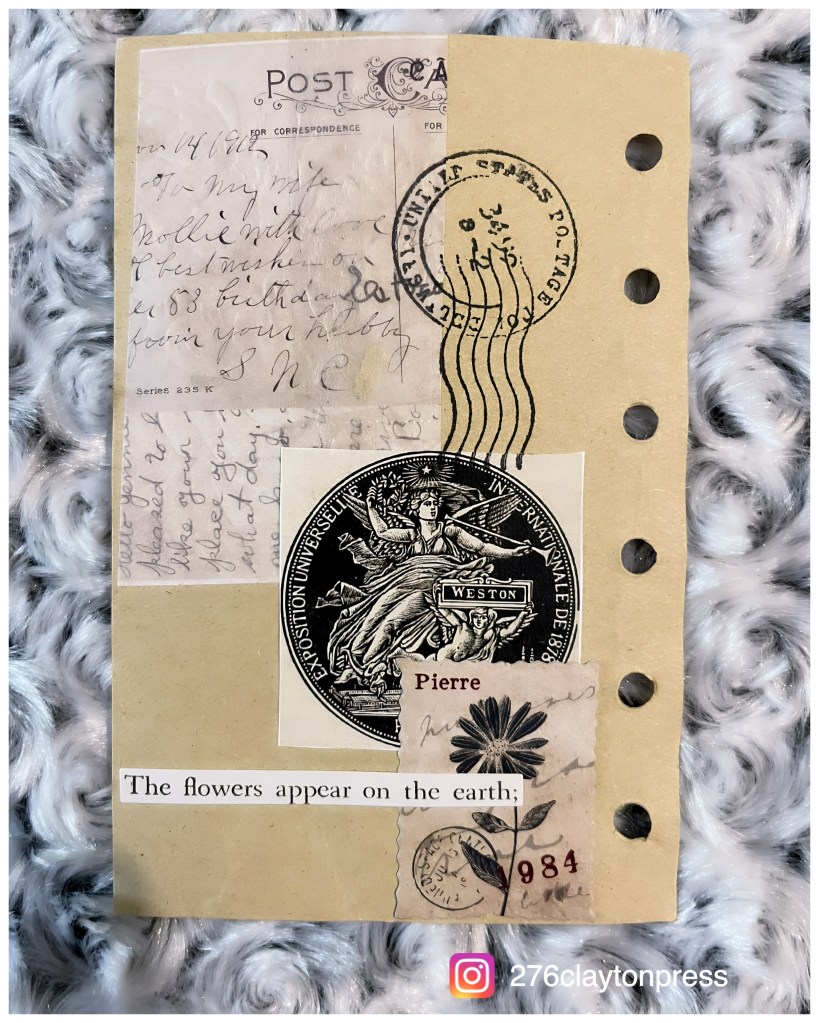 POST CA
FOR CORRESPONDENCE
FOR
14 1912
To my wife
Mollie with love
& best wishes on
53 birthday
from your hubby
S N C
Series 235 K
UNITED STATES POSTAGE
Hello
pleased to
like your
place you
what day.
EXPOSITION UNIVERSELLE INTERNATIONALE DE 1878
WESTON
Pierre
The flowers appear on the earth;
1984
276claytonpress